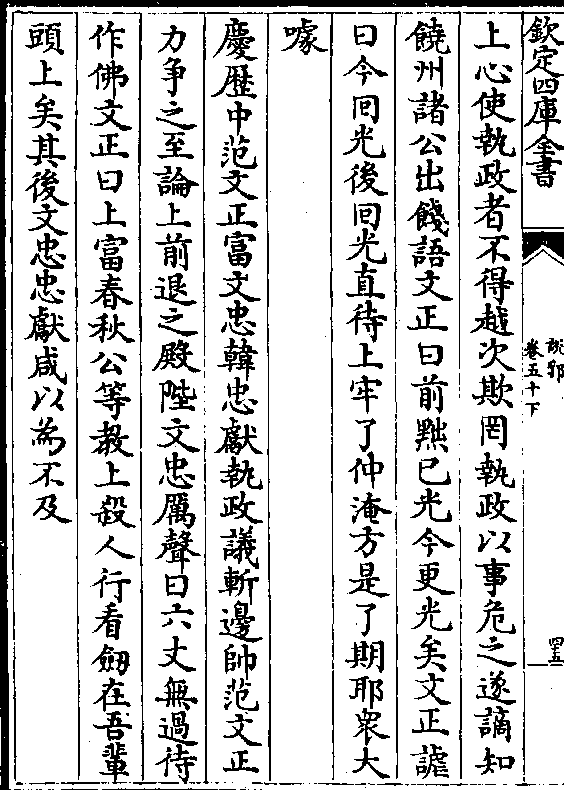 欽定四庫全書
說郛
卷五十下
四五
上心使執政者不得越次欺罔執政以事危之遂謫知
饒州諸公出餞語文正曰前黜已光今更光矣文正謔
曰今囘光後囘光直待上牢了仲淹方是了期耶衆大
噱
慶歴中范文正富文忠韓忠獻執政議斬邊帥范文正
力争之至論上前退之殿陛文忠厲聲曰六丈無過待
作佛文正曰上富春秋公等教上殺人行看劔在吾輩
頭上矣其後文忠忠獻咸以為不及